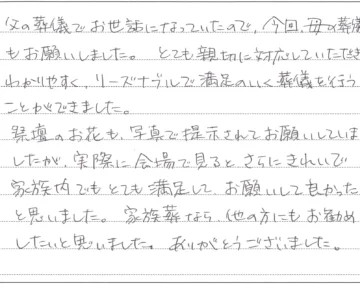 父の葬儀でお世話になっていたので、今回、母の葬儀
もお願いしました。とても親切に対応していただき
わかりやすく、リーズナブルで満足のいく葬儀を行う
ことができました。
祭壇のお花も、写真で提示されてお願いしていま
したが、実際に会場で見ると、さらにきれいで
家族内でもとても満足して、お願いして良かった
と思いました。家族葬なら、他の方にもお勧め
したいと思いました。ありがとうございました。